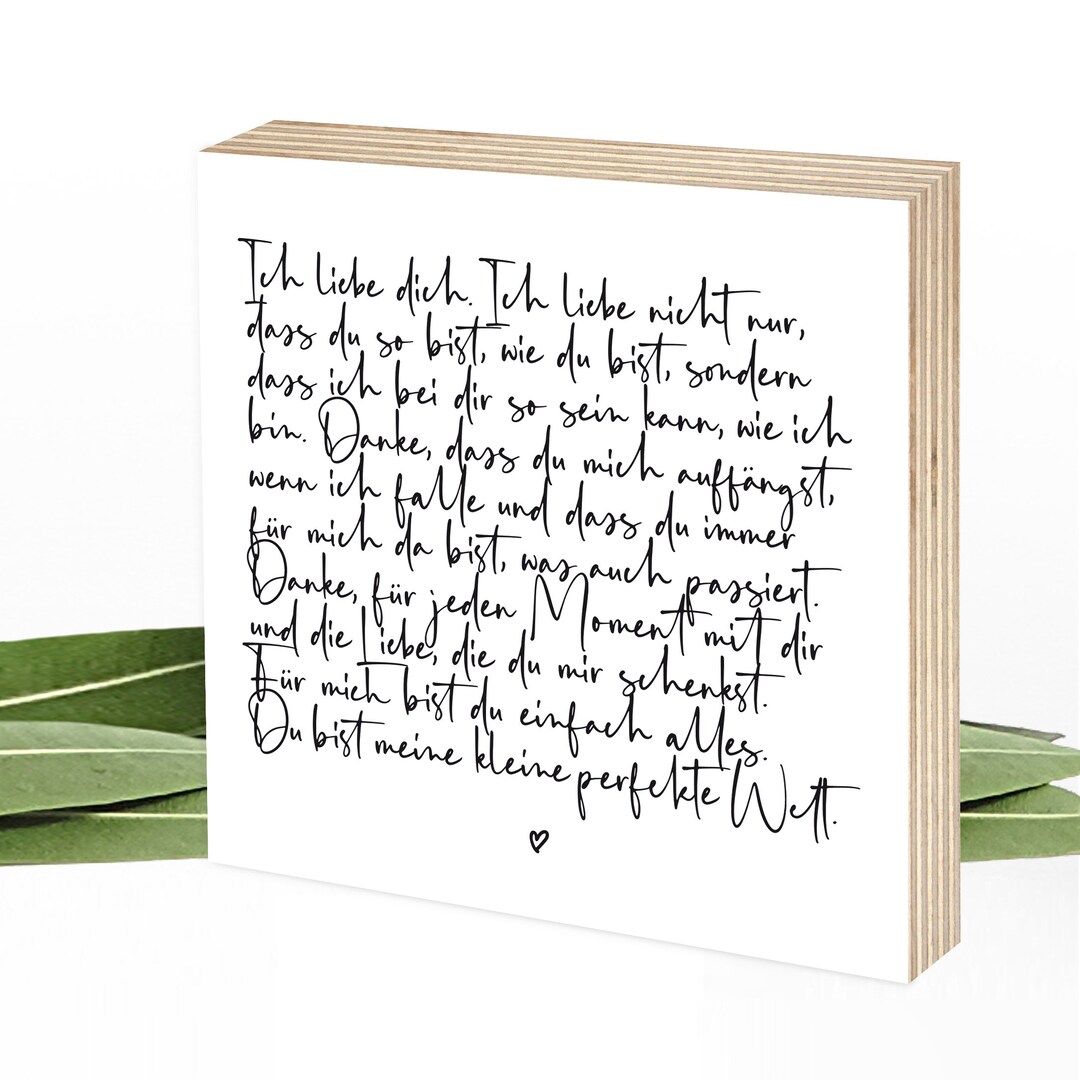 Ich liebe dich. Ich liebe nicht nur,
dass du so bist, wie du bist, sondern
dass ich bei dir so sein kann, wie ich
bin. Danke, dass du mich auffängst,
wenn ich falle und dass du immer
für mich da bist, was auch passiert.
Danke, für jeden Moment mit dir
und die Liebe, die du mir schenkst.
Für mich bist du einfach alles.
Du bist meine kleine perfekte Welt.